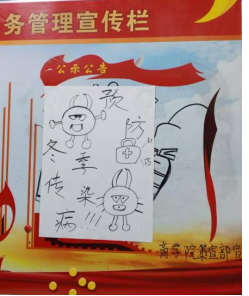 务管理宣传栏
公示公告
预防
冬季传染病!!!
商学院策宣部宣